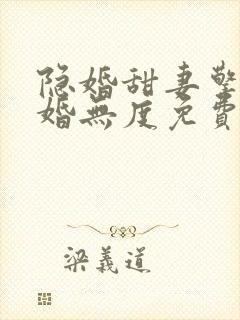 隐婚甜妻擎
婚無度免費
梁義道